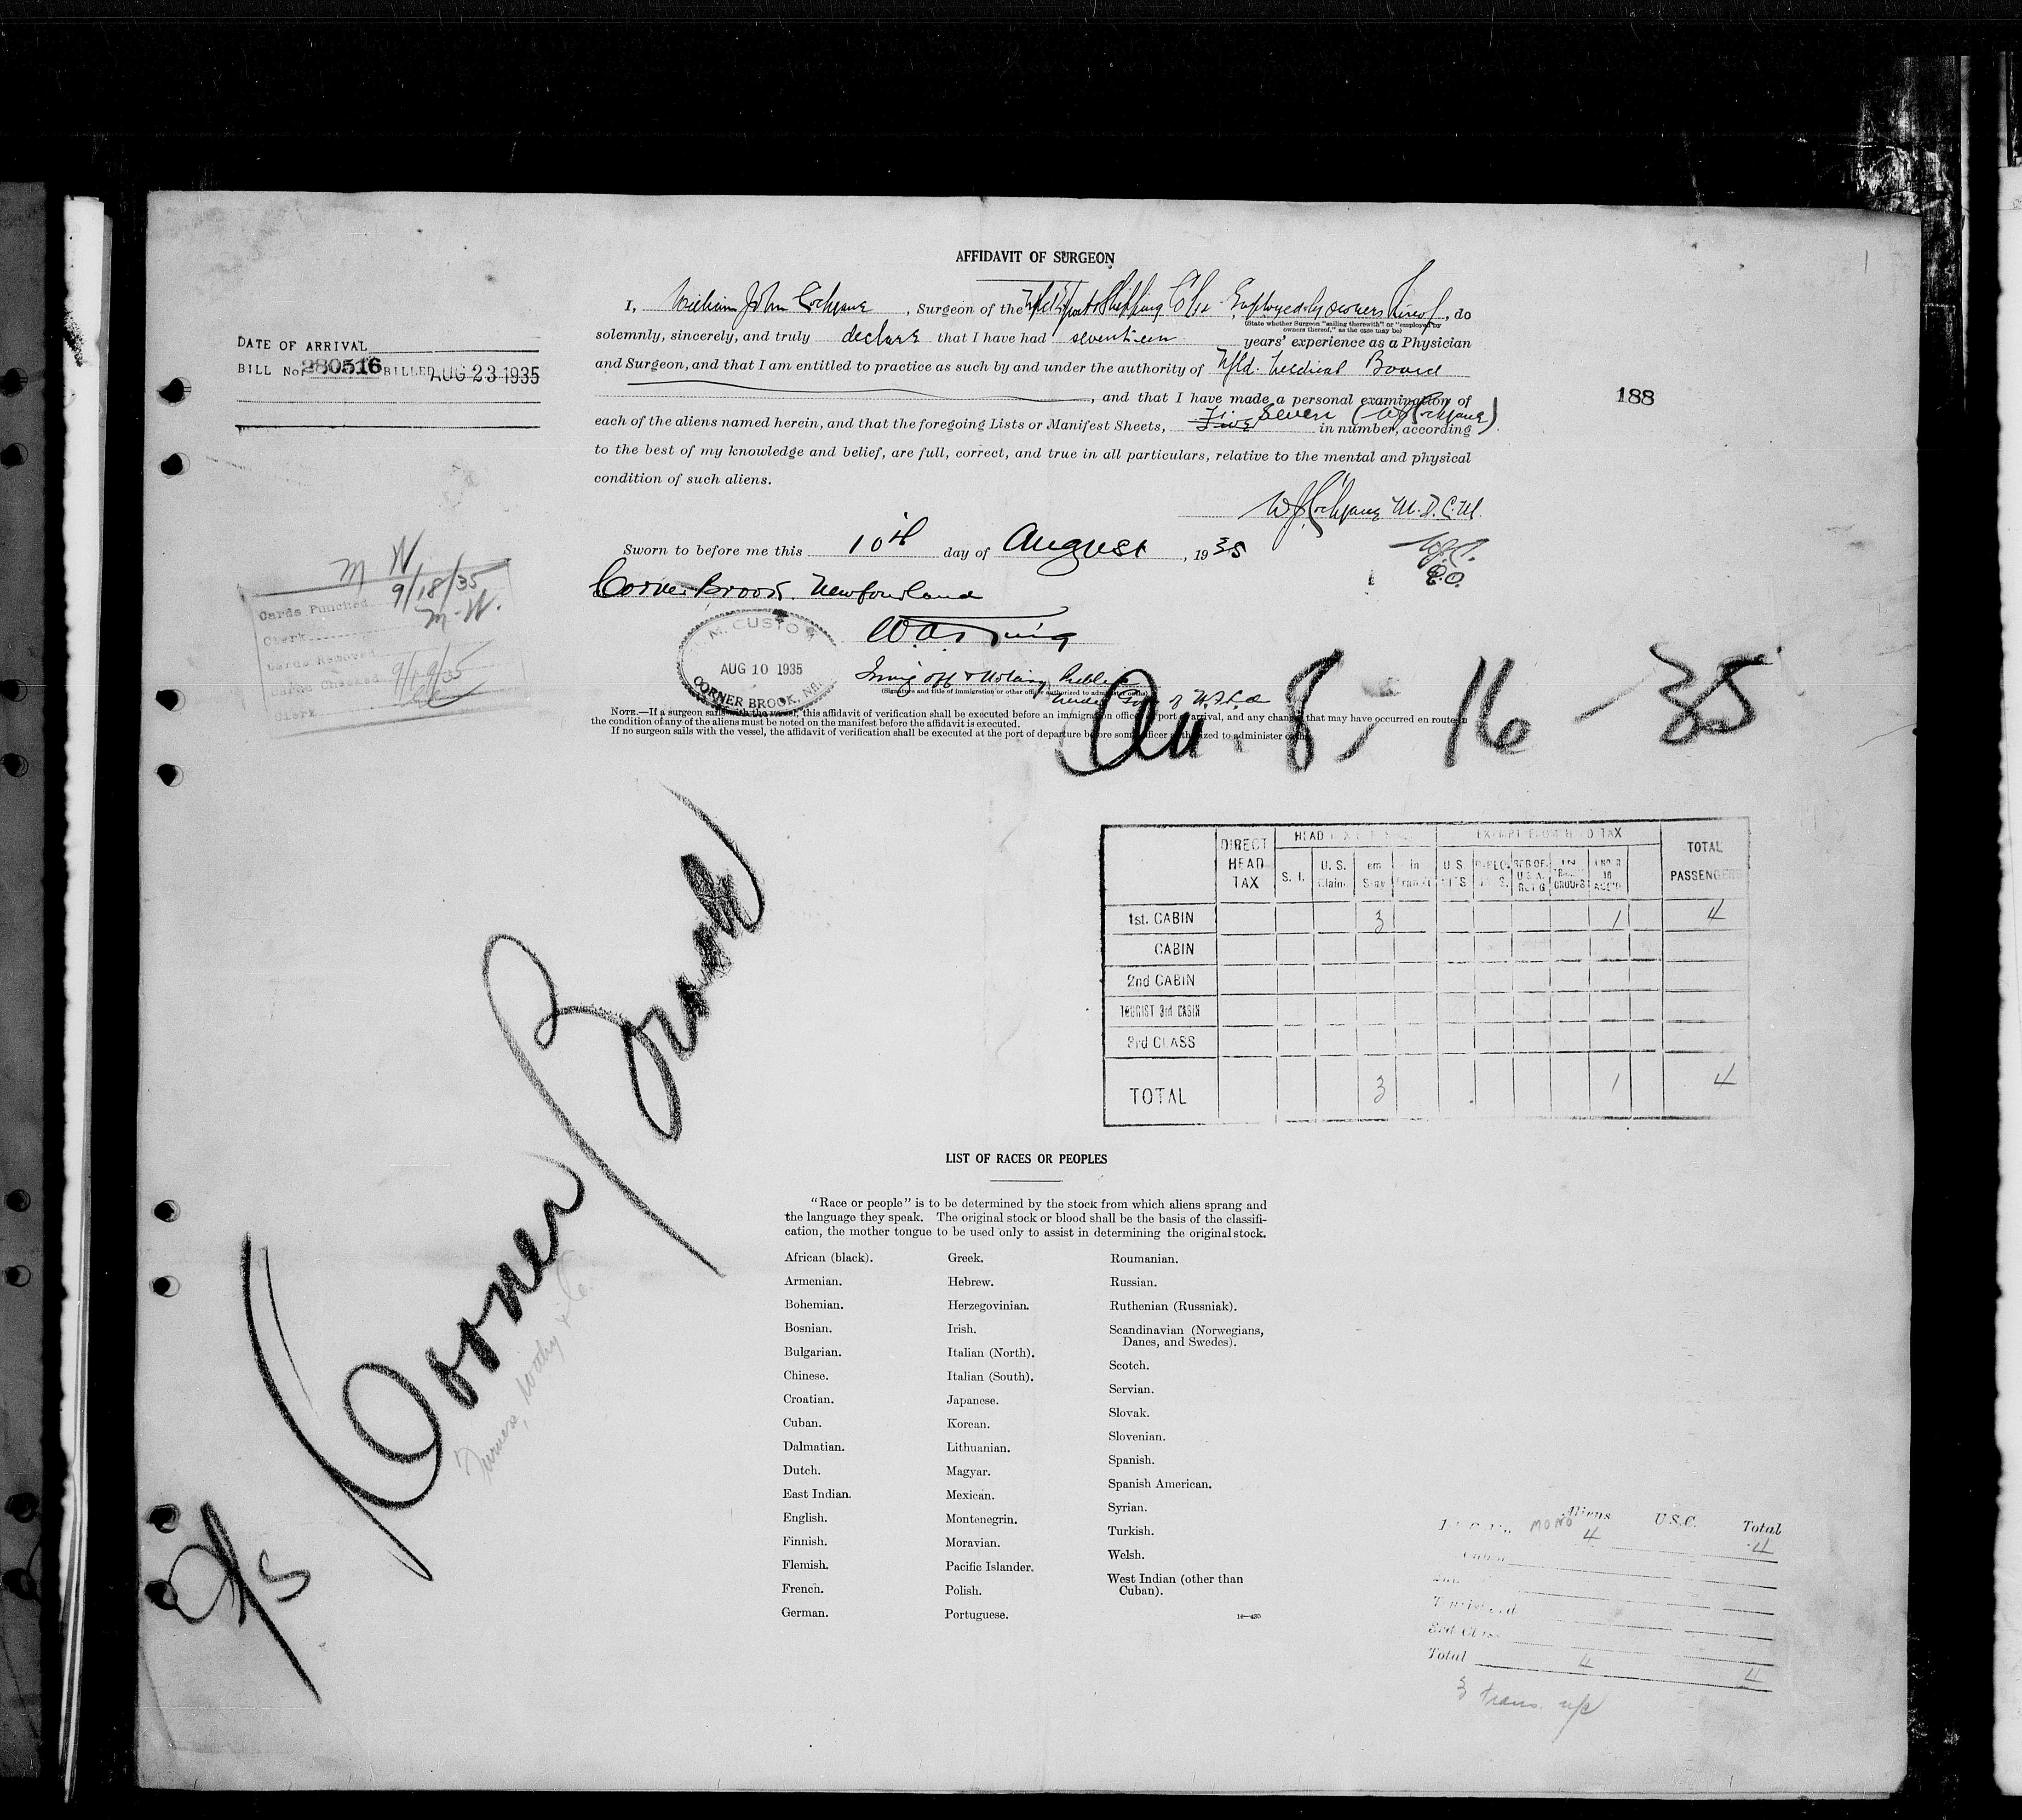 AFFIDAVIT OF SURGEON
I, William John Cochrane, Surgeon of the Nfld Export & Shipping Co Ltd Employed by owners thereof, do
(State whether Surgeon "sailing therewith" or "employed by
owners thereof," as the case may be)
solemnly, sincerely, and truly declare that I have had seventeen years' experience as a Physician
and Surgeon, and that I am entitled to practice as such by and under the authority of Nfld. Medical Board
, and that I have made a personal examination of
each of the aliens named herein, and that the foregoing Lists or Manifest Sheets, Five Seven (WJCochrane) in number, according
to the best of my knowledge and belief, are full, correct, and true in all particulars, relative to the mental and physical
condition of such aliens.
WJCochrane M.D.C.M.
Sworn to before me this 10th day of August, 1935
Corner Brook Newfoundland
(Signature and title of immigration or other officer authorized to administer oaths)
NOTE.—If a surgeon sails with the vessel, this affidavit of verification shall be executed before an immigration officer port of arrival, and any change that may have occurred en route in
the condition of any of the aliens must be noted on the manifest before the affidavit is executed.
If no surgeon sails with the vessel, the affidavit of verification shall be executed at the port of departure before some officer authorized to administer oaths.
DATE OF ARRIVAL
BILL No. 280516 BILLED AUG 23 1935
188
M W
Cards Punched 9/18/35
Clerk M-W.
Cards Removed
Cards Checked 9/19/35
Clerk
CUSTOM
AUG 10 1935
CORNER BROOK, Nfld.
8, 16-35
Corner Brook
Furness, Withy & Co.
S/S
DIRECT HEAD TAX
HEAD TAX
EXEMPT FROM HEAD TAX
TOTAL PASSENGERS
S. I.
U. S. Claim
1st. CABIN 3 1 4
CABIN
2nd CABIN
TOURIST 3rd CABIN
3rd CLASS
TOTAL 3 1 4
LIST OF RACES OR PEOPLES
"Race or people" is to be determined by the stock from which aliens sprang and
the language they speak. The original stock or blood shall be the basis of the classifi-
cation, the mother tongue to be used only to assist in determining the original stock.
African (black).
Armenian.
Bohemian.
Bosnian.
Bulgarian.
Chinese.
Croatian.
Cuban.
Dalmatian.
Dutch.
East Indian.
English.
Finnish.
Flemish.
French.
German.
Greek.
Hebrew.
Herzegovinian.
Irish.
Italian (North).
Italian (South).
Japanese.
Korean.
Lithuanian.
Magyar.
Mexican.
Montenegrin.
Moravian.
Pacific Islander.
Polish.
Portuguese.
Roumanian.
Russian.
Ruthenian (Russniak).
Scandinavian (Norwegians,
Danes, and Swedes).
Scotch.
Servian.
Slovak.
Slovenian.
Spanish.
Spanish American.
Syrian.
Turkish.
Welsh.
West Indian (other than
Cuban).
Aliens U.S.C. Total
MONO 4 4
Cabin
3rd Class
Total 4 4
3 trans.